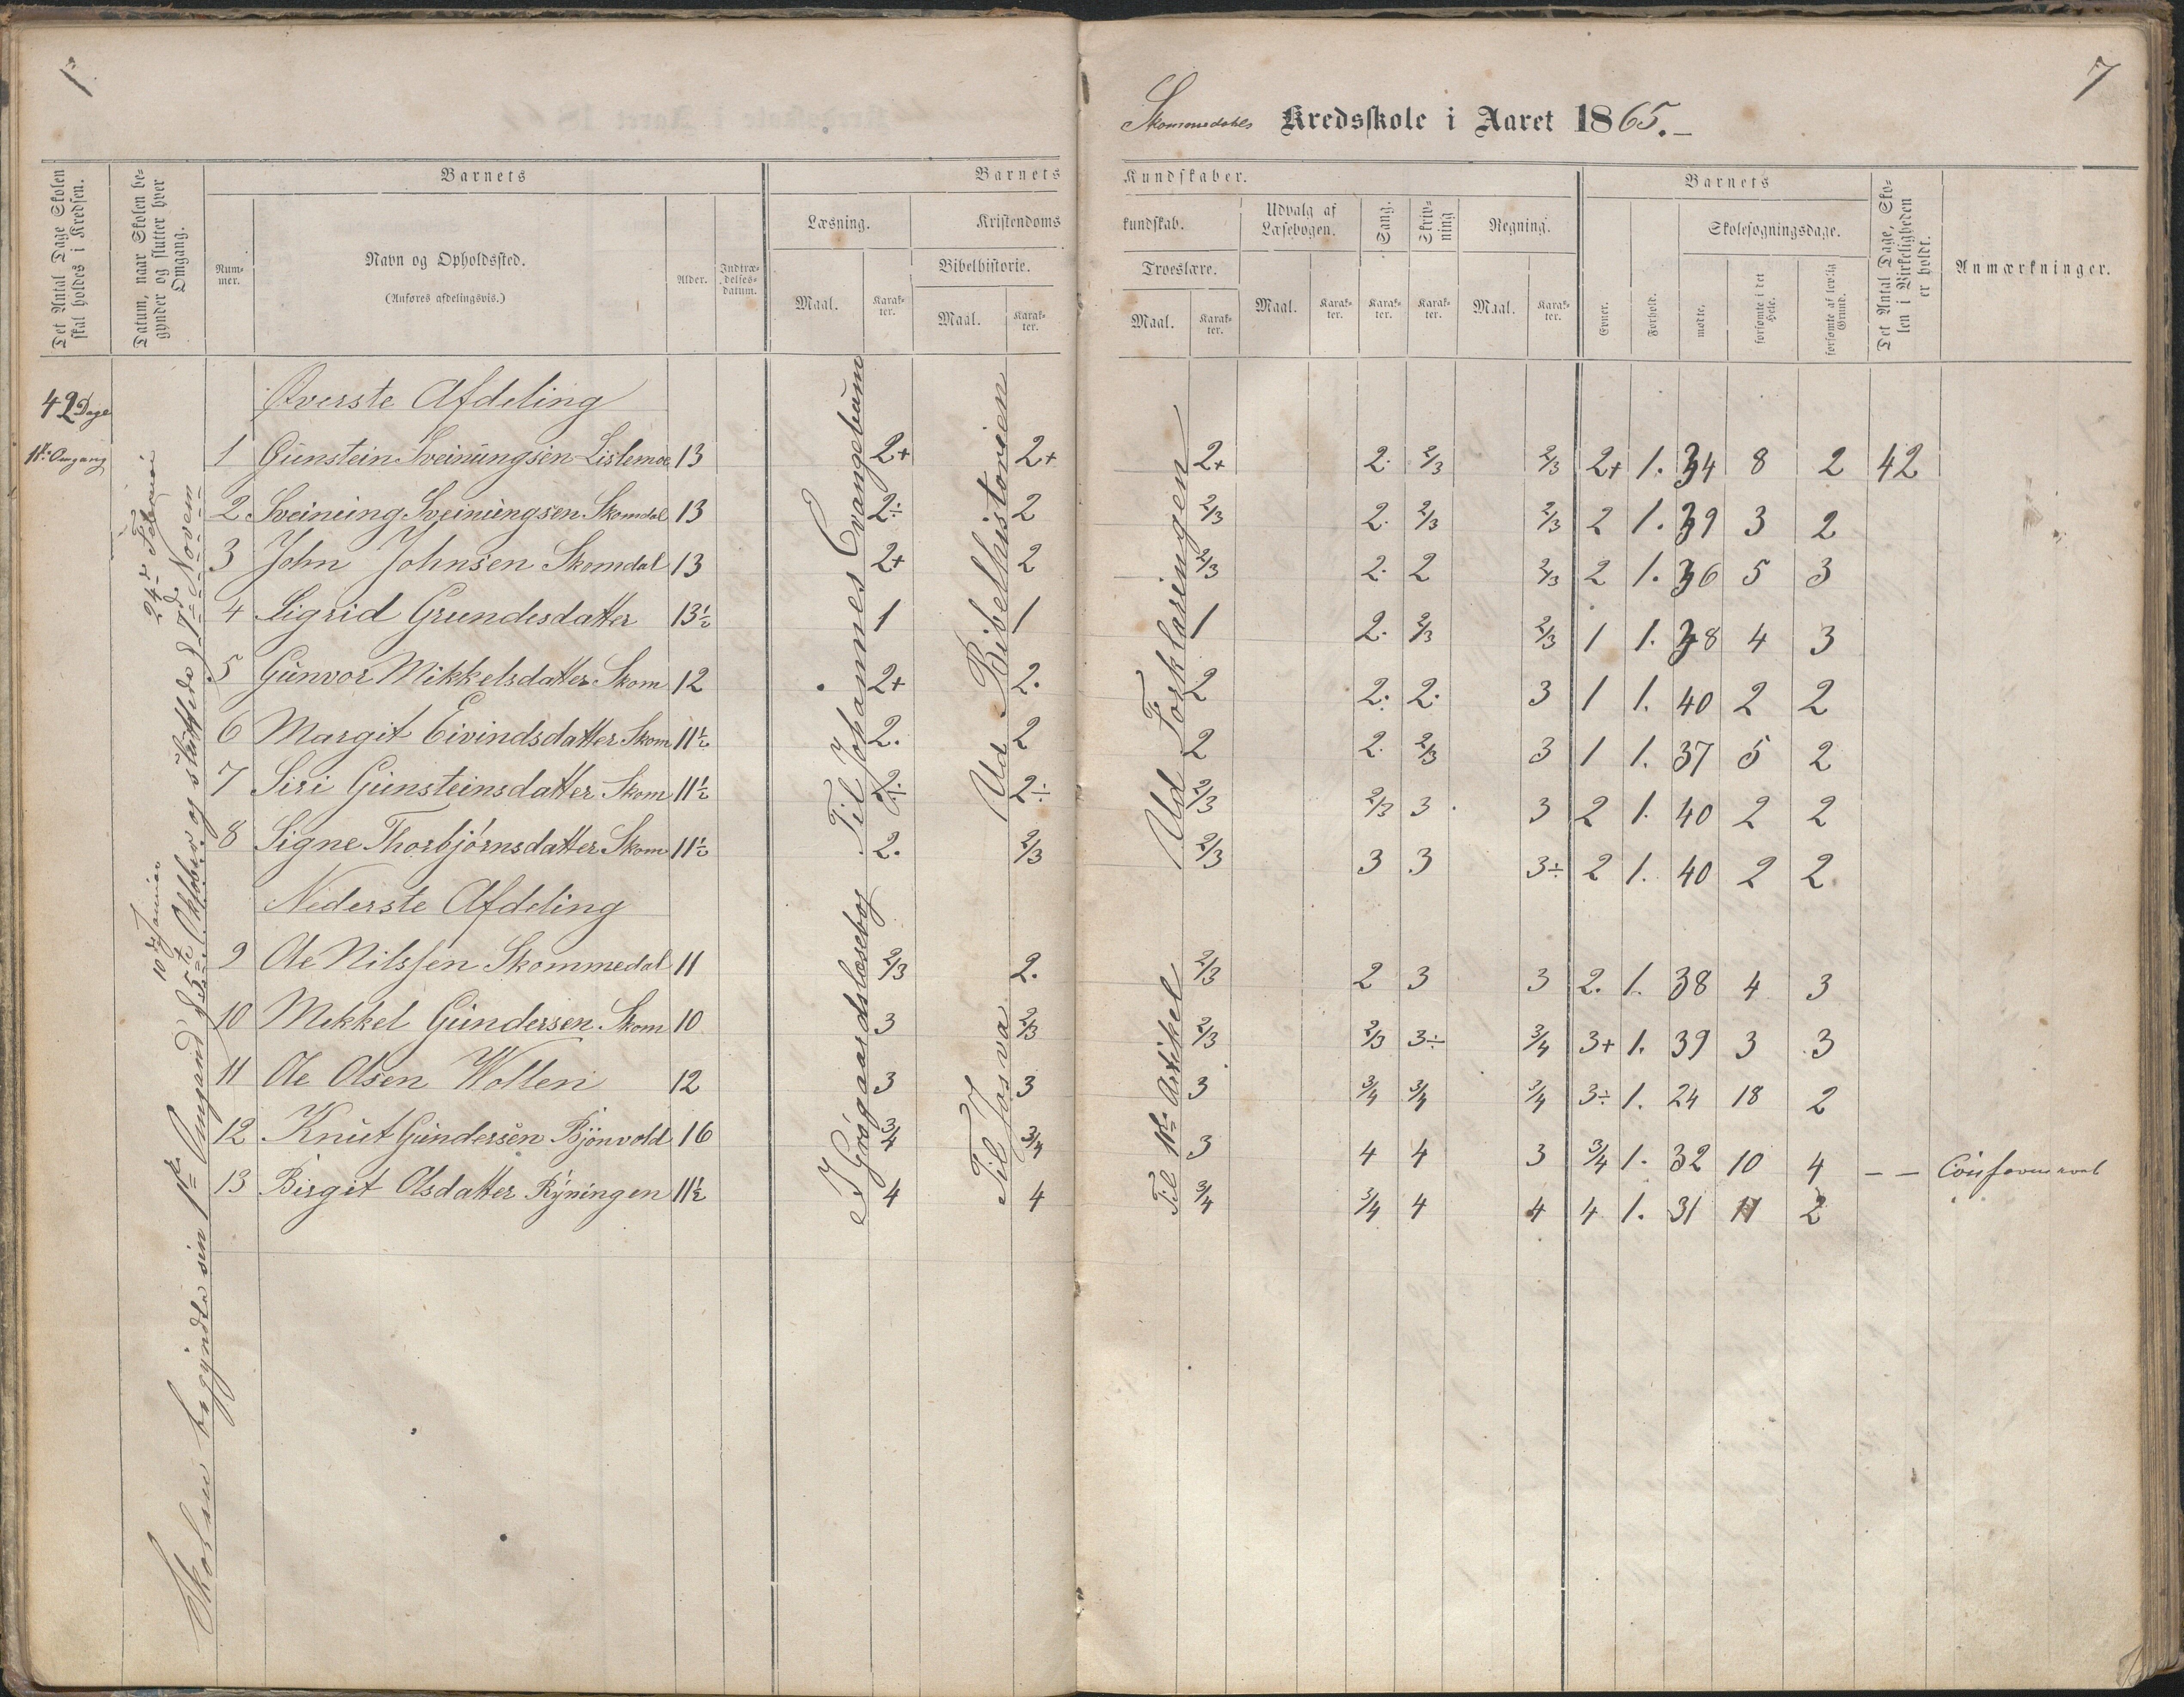 7
Skommedals Kredsskole i Aaret 1865.
Det Antal Dage Skolen skal holdes i Kredsen.
Datum, naar Skolen begynder og slutter hver Omgang.
Barnets
Nummer.
Navn og Opholdssted.
(Anføres afdelingsvis.)
Alder.
Indtrædelsesdatum.
Barnets Kundskaber.
Læsning.
Maal. Karakter.
Kristendomskundskab.
Bibelhistorie.
Maal. Karakter.
Troeslære.
Maal. Karakter.
Udvalg af Læsebogen.
Maal. Karakter.
Sang.
Karakter.
Skrivning
Karakter.
Regning.
Maal. Karakter.
Barnets
Evner.
Forhold.
Skolesøgningsdage.
mødte.
forsømte i det Hele.
forsømte af lovlig Grund.
Det Antal Dage, Skolen i Virkeligheden er holdt.
Anmærkninger.
42 Dage
1ste Omgang
Skolen begyndte sin 1ste Omgang d. 5te Oktober og sluttede d. 7de Novem
10de Januar
24de Februar
Til Johannes Evangelium
Ud Bibelhistorien
Ud Forklaringen
Øverste Afdeling
1 Gunstein Sveinungsen Lislemoe 13 2+ 2+ 2+ 2. 2/3 2/3 2+ 1. 34 8 2 42
2 Sveinung Sveinungsen Skomdal 13 2÷ 2 2/3 2. 2/3 2/3 2 1. 39 3 2
3 John Johnsen Skomdal 13 2+ 2 2/3 2. 2 2/3 2 1. 36 5 3
4 Sigrid Grundesdatter 13½ 1 1 1 2. 2/3 2/3 1 1. 38 4 3
5 Gunvor Mikkelsdatter Skom 12 2+ 2. 2 2. 2. 3 1 1. 40 2 2
6 Margit Eivindsdatter Skom 11½ 2. 2 2 2. 2/3 3 1 1. 37 5 2
7 Siri Gunsteinsdatter Skom 11½ 2÷ 2÷ 2/3 2/3 3 3 2 1. 40 2 2
8 Signe Thorbjørnsdatter Skom 11½ 2. 2/3 2/3 3 3 3÷ 2 1. 40 2 2
Nederste Afdeling
I Grøgaards læsebog
Til Josva
Til 1ste Artikel
9 Ole Nilssen Skommedal 11 2/3 2. 2/3 2 3 3 2. 1. 38 4 3
10 Mekkel Gundersen Skom 10 3 2/3 2/3 2/3 3÷ 3/4 3+ 1. 39 3 3
11 Ole Olsen Wollen 12 3 3 3 3/4 3/4 3/4 3÷ 1. 24 18 2
12 Knut Gundersen Bjønvold 16 3/4 3/4 3 4 4 3 3/4 1. 32 10 4 — — Counfermeret
13 Birgit Olsdatter Ryningen 11½ 4 4 3/4 3/4 4 4 4 1. 31 11 2